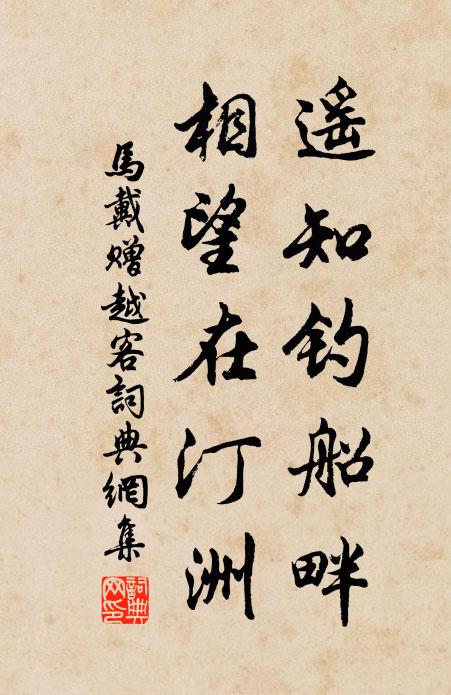 遥知钓船畔
相望在汀洲
馬戴赠越客詞典網集
詞典网印